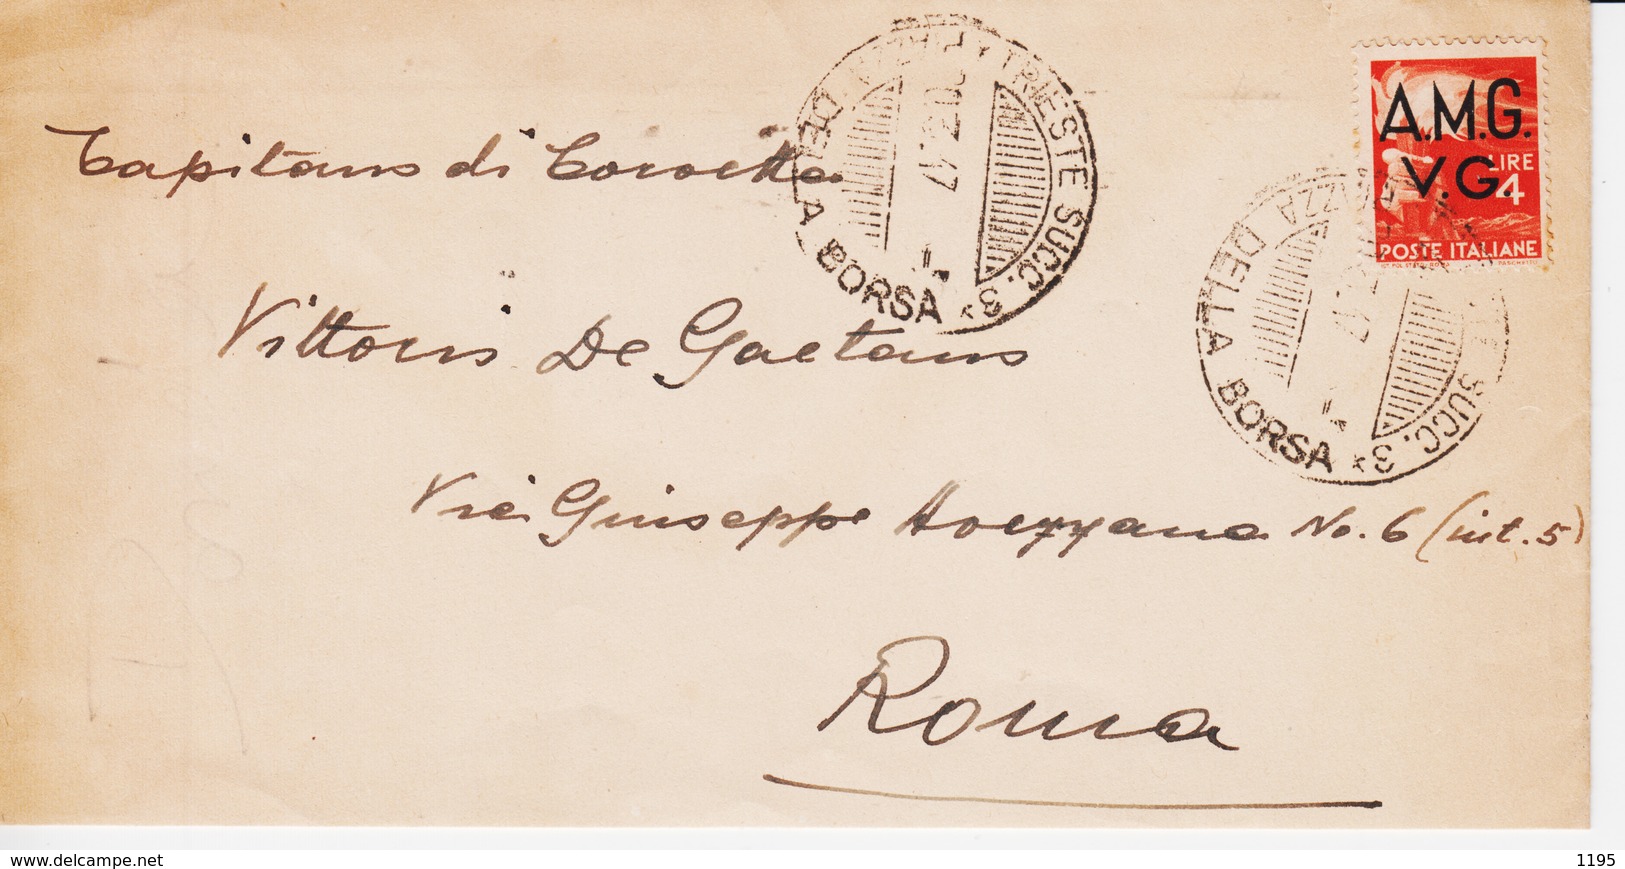 TRIESTE SUCC. 3
PIAZZA DELLA BORSA
A.M.G.
V.G.
LIRE
4
POSTE ITALIANE
Capitano di Corvetta
Vittorio De Gaetano
SUCC. 3
DELLA BORSA
Via Giuseppe Avezzana No. 6 (int. 5)
Roma
www.delcampe.net
1195